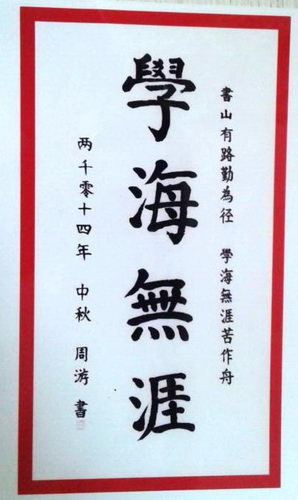 書山有路勤為径 學海無涯苦作舟
學海無涯
两千零十四年 中秋 周游 書